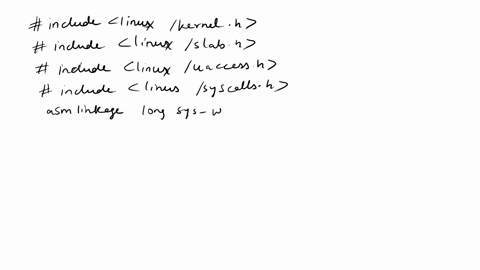 #include <linux /kernel.h>
# include <linux /slab.h>
# include <linux /uaccess.h>
# include <linux /syscalls.h>
asmlinkage long sys-w